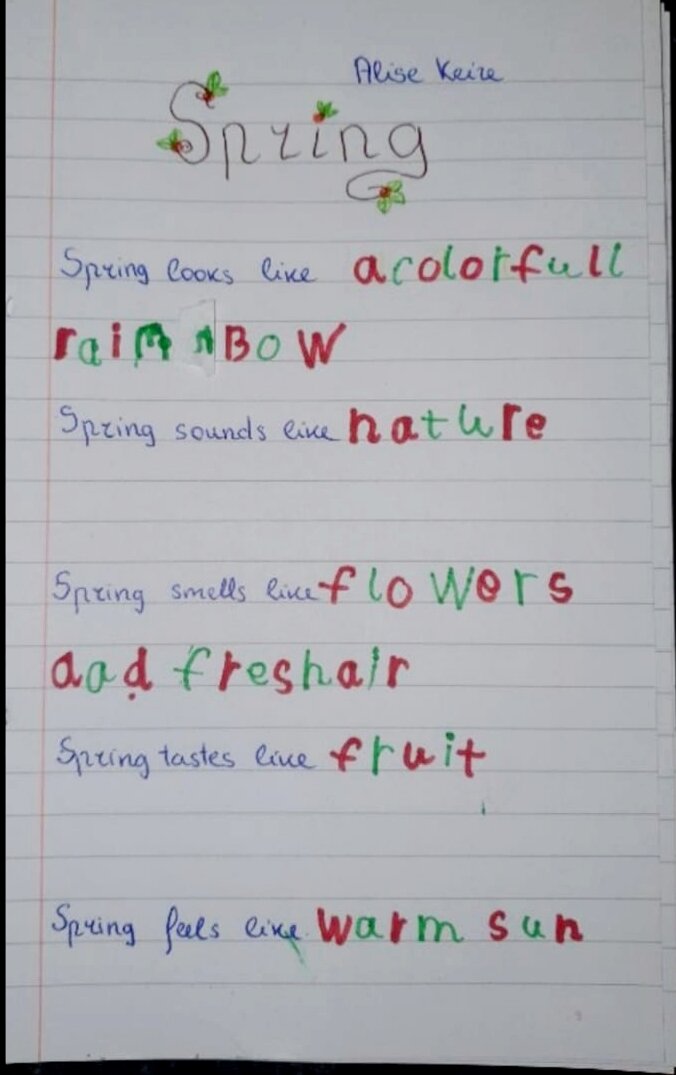 Alise Keire
Spring
Spring looks like acolorfull
rainBow
Spring sounds like nature
Spring smells like flowers
aad freshair
Spring tastes like fruit
Spring feels like warm sun